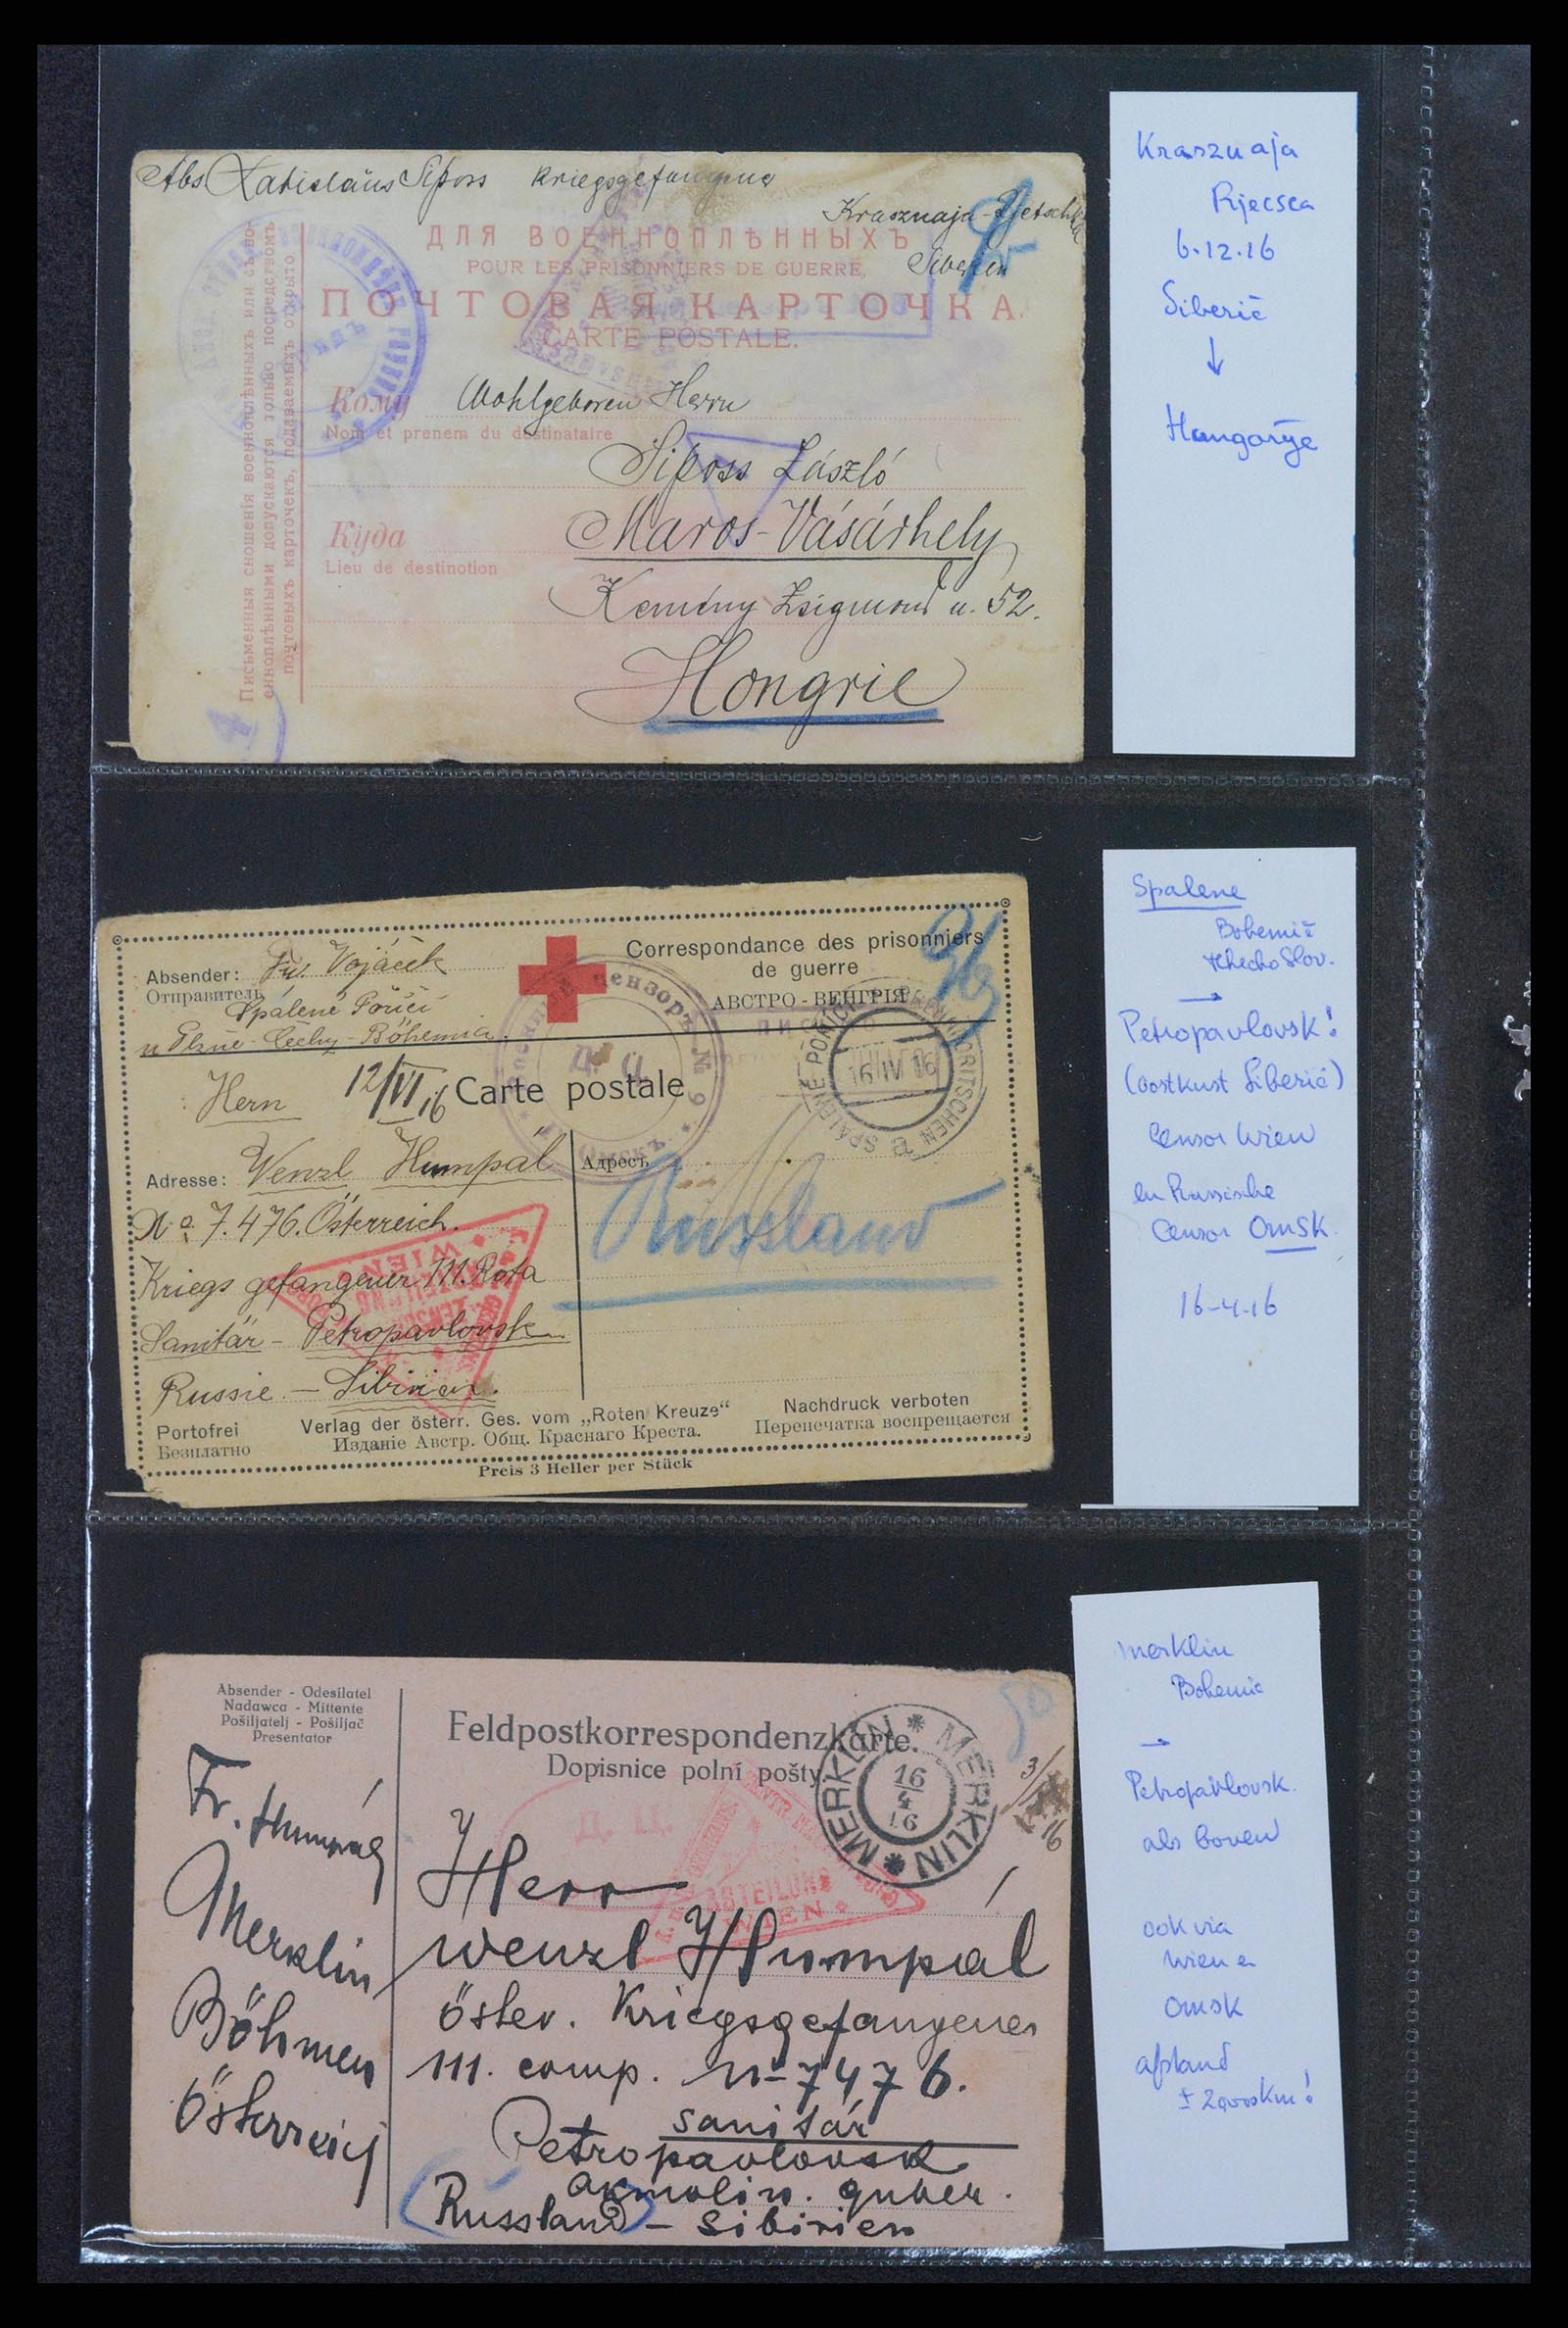 Abs Ladislaus Siposs Kriegsgefangene
Krasznaja-Rjetschka
Siberien
ДЛЯ ВОЕННОПЛѢННЫХЪ
POUR LES PRISONNIERS DE GUERRE
ПОЧТОВАЯ КАРТОЧКА.
CARTE POSTALE.
Письменныя сношенія военноплѣнныхъ или съ во-
еннoплѣнными допускаются только посредствомъ
почтовыхъ карточекъ, подаваемыхъ открыто.
Кому Wohlgeboren Herrn
Nom et prenem du destinataire
Siposs László
Куда Maros-Vásárhely
Lieu de destinotion
Kemény Zsigmond u. 52.
Hongrie
Krasznaja
Rjecsea
6.12.16
Siberië
↓
Hongarije
Absender: Fr. Vojáček
Отправитель
Spálené Poříčí
u Plzně - Čechy - Böhemia.
Correspondance des prisonniers
de guerre
АВСТРО-ВЕНГРІЯ
Военный цензоръ № 9
Д. Ц.
Омскъ
16 IV 16
Hern 12/VI 16 Carte postale
Adresse: Wenzl Humpál
Адресъ
Russland
No. 7.476. Österreich.
Kriegsgefangener III. Rota
WIEN
Sanitär - Petropavlovsk
Russie - Sibirien.
Portofrei
Безплатно
Verlag der österr. Ges. vom „Roten Kreuze“
Изданіе Австр. Общ. Краснаго Креста.
Nachdruck verboten
Перепечатка воспрещается
Preis 3 Heller per Stück
Spalene
Bohemië
Tchecho Slov.
→
Petropavlovsk!
(oostkust Siberië)
Censor Wien
en Russische
Censor Omsk.
16-4-16
Absender - Odesílatel
Nadawca - Mittente
Pošiljatelj - Pošiljač
Presentator
Feldpostkorrespondenzkarte.
Dopisnice polní pošty.
MERKLIN * MERKLIN * MERKLIN
16
4
16
Д. Ц.
ABTEILUNG
WIEN
Fr. Humpál
Merklin
Böhmen
Österreich
Herr
Wenzl Humpál
öster. Kriegsgefangener
III. comp. No 7476.
sanitär
Petropavlovsk
akmolin. guber.
Russland - Sibirien
Merklin
Bohemie
→
Petropavlovsk
als boven
ook via
Wien en
Omsk
afstand
± 2000km!